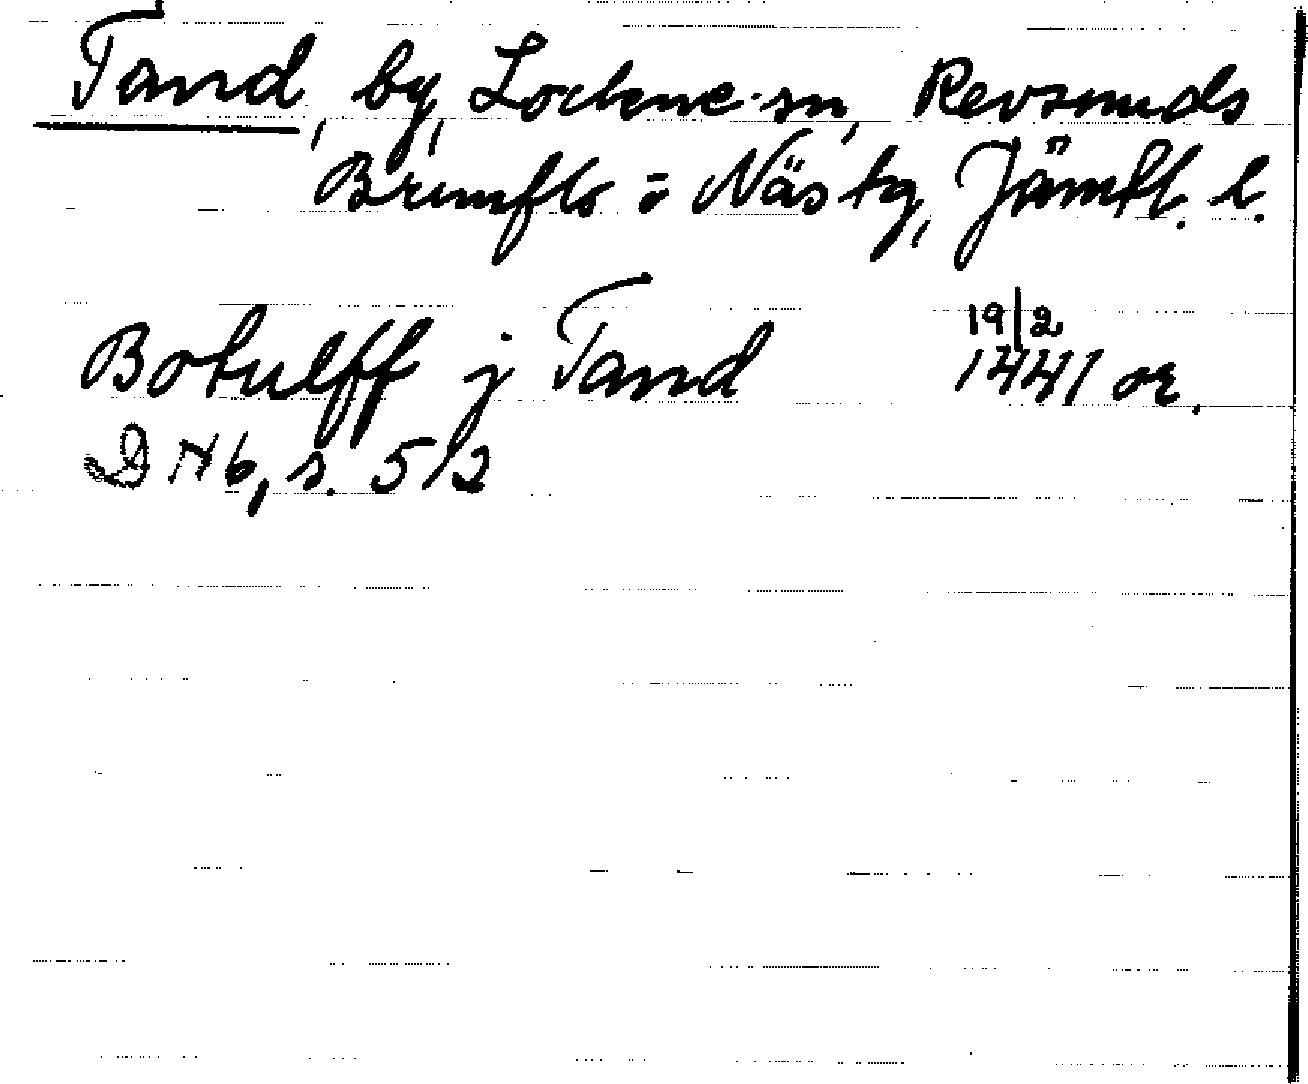 Tand, by, Lockne sn, Revsunds
Brunflo o Näs tg, Jämtl. l.
Botulff j Tand 19/2 1441 or.
DN 6, s. 512